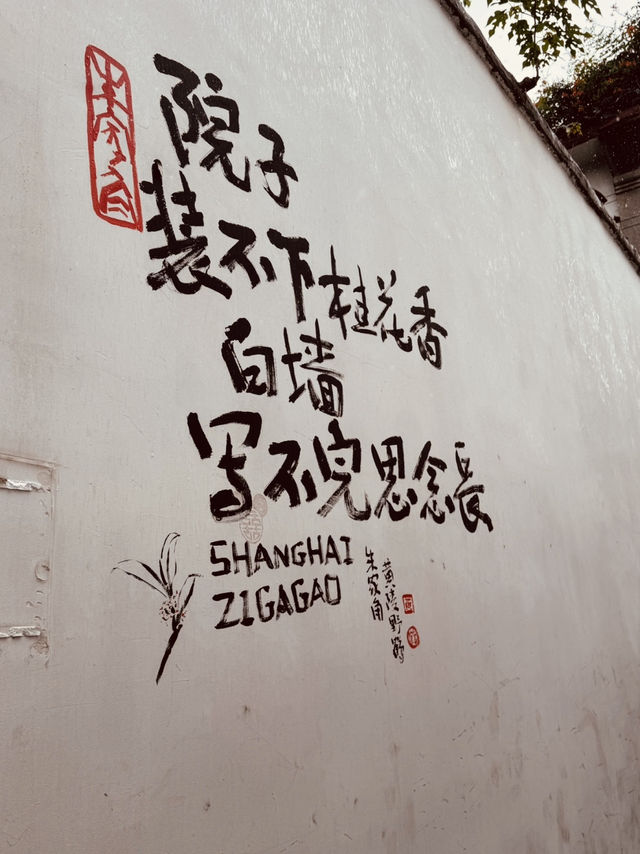 朱家角
院子
装不下桂花香
白墙
写不完思念長
SHANGHAI
ZIGAGAO
朱家角
黄陵野鹤